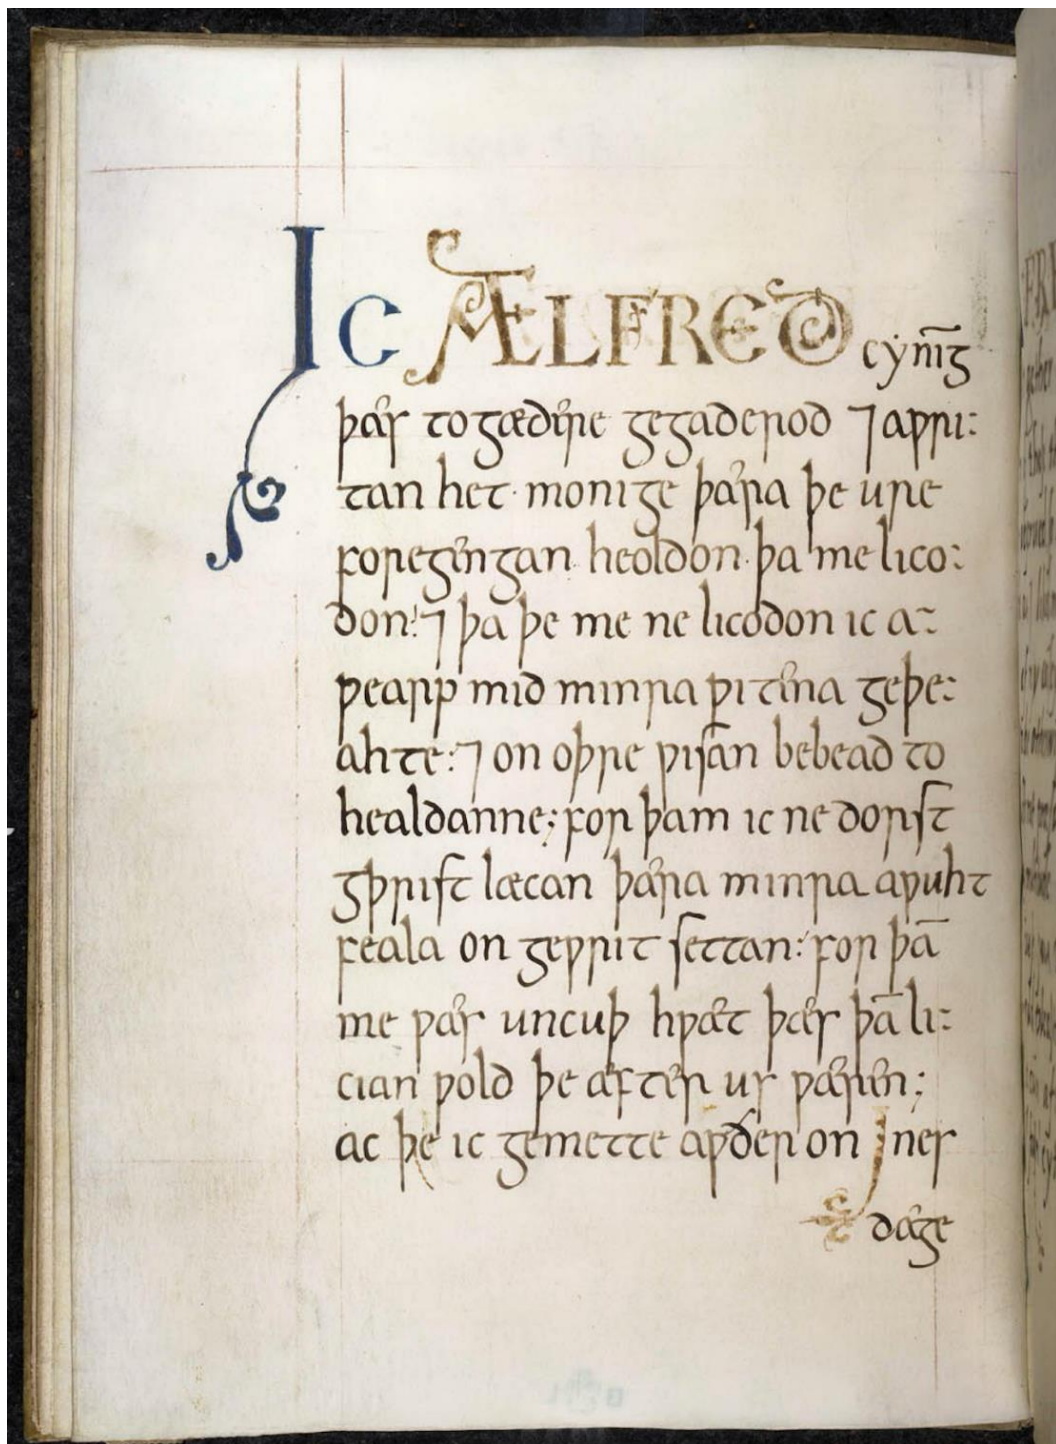 Ic ÆLFRED cyni̅g
þæs togædere gegaderod ⁊ aƿri:
tan het· monige þæra þe ure
foregengan heoldon· þa me lico:
don:⁊ þa þe me ne licodon ic a:
ƿearp mid minra ƿitena geþe:
ahte:⁊ on oþre ƿisan bebead to
healdanne; for þam ic ne dorst
geþrist læcan þæra minra aƿuht
feala on geƿrit settan: for þā
me ƿæs uncuþ hƿæt þæs þā li:
cian ƿold þe æfter us ƿæren;
ac þe ic gemette aƿðer on Jnes
dæge